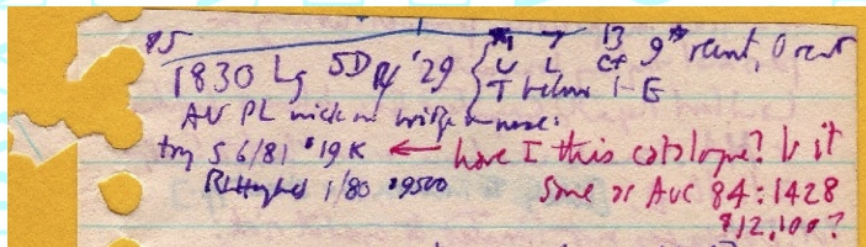 $5
1830 Lg 5D R/ '29 { U L CF 9* recut, 0 recut
T below I-E
AU PL nick on bridge nose:
try S 6/81 $19K ← have I this catalogue? Is it
RHughes 1/80 $9500 same as Auc 84:1428
$12,100?